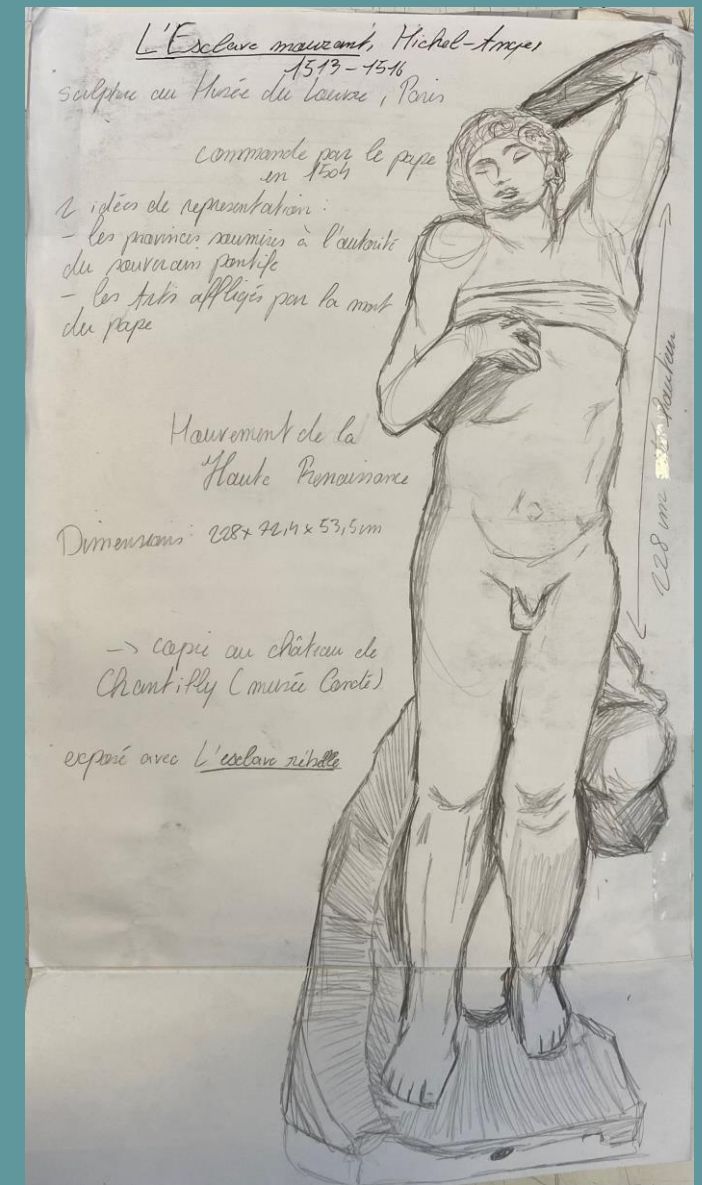 L'Esclave mourant, Michel-Ange,
1513-1516
sculpture au Musée du Louvre, Paris
commande par le pape
en 1504
2 idées de représentation :
- les provinces soumises à l'autorité
du souverain pontife
- les Arts affligés par la mort
du pape
Mouvement de la
Haute Renaissance
Dimensions : 228 x 72,4 x 53,5 cm
-> copie au château de
Chantilly (musée Condé)
exposé avec L'esclave rebelle
228 cm hauteur